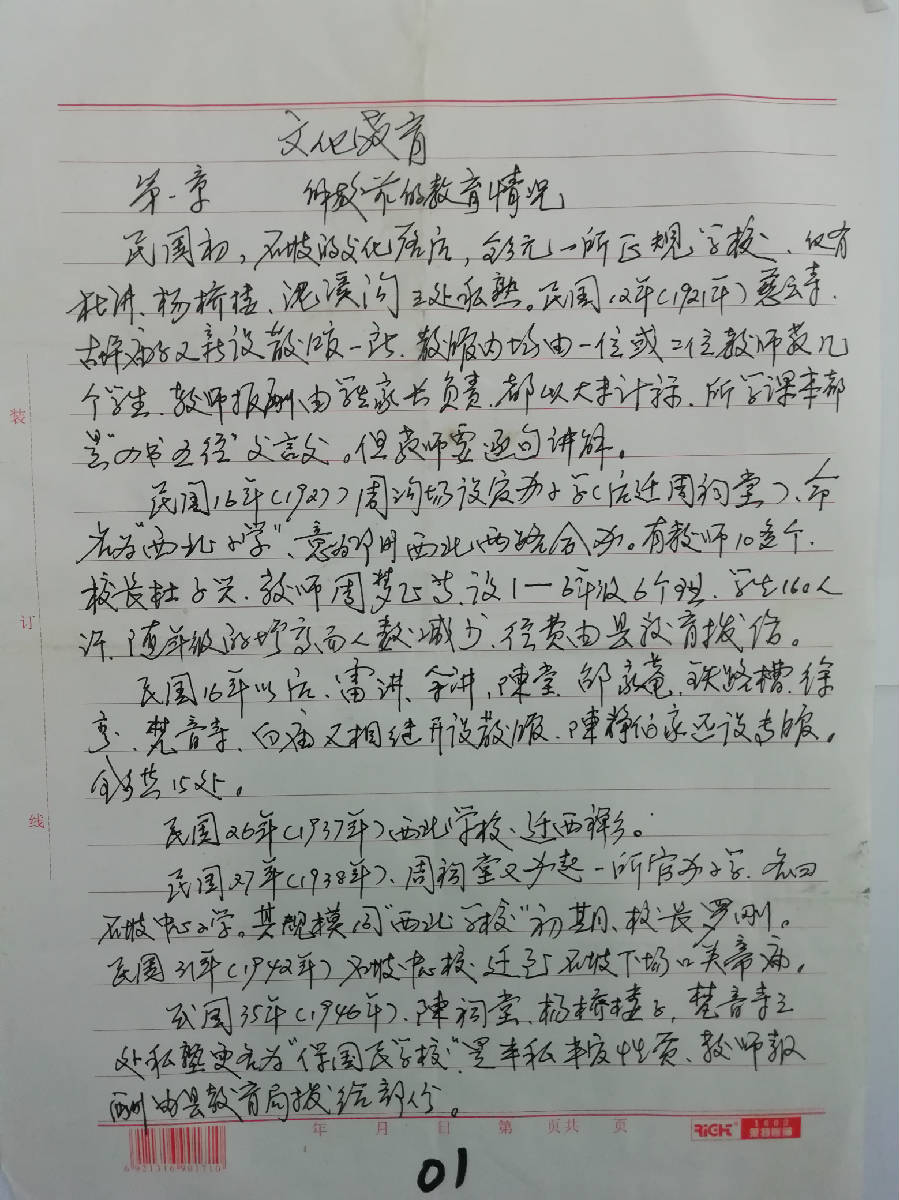 文化教育
第一章 解放前的教育情况
民国初,石坡的文化落后,全乡无一所正规学校、仅有
杜讲、杨桥楼、泥溪沟三处私熟。民国12年(1921年)慈云寺、
古坪庙子又新设散馆一批、散馆内均由一位或二位教师教几
个学生、教师报酬由学生家长负责、都以大米计算、所学课本都
是“四书五径”文言文。但教师要逐句讲解。
民国16年(1927)周沟场设官办小学(后迁周祠堂)、命
名为“西北小学”、意为 西北两路合办。有教师10多个、
校长杜子兴、教师周梦飞等、设1—6年级6个班、学生160人
许、随年级的增高而人数减少、径费由县教育拨给。
民国16年以后、雷讲、余讲、陳堂、邹家庵、铁路槽、徐
、梵音寺、白庙又相继开设散馆、陳静伯家还设专馆。
全乡共15处。
民国26年(1937年)、西北学校、迁西禅乡。
民国27年(1938年)、周祠堂又办起一所官办小学、名曰
石坡中心小学。其规模同“西北学校”初期、校长罗刚。
民国31年(1942年)石坡中心校、迁至石坡下场口关帝庙。
民国35年(1946年)、陳祠堂、杨桥楼子、梵音寺三
处私塾更名为“保国民学校”是半私半官性质、教师报
酬由县教育局拨给部分。
装
订
线
年 月 日 第 页共 页
RiCH
1602
6921316901710
01